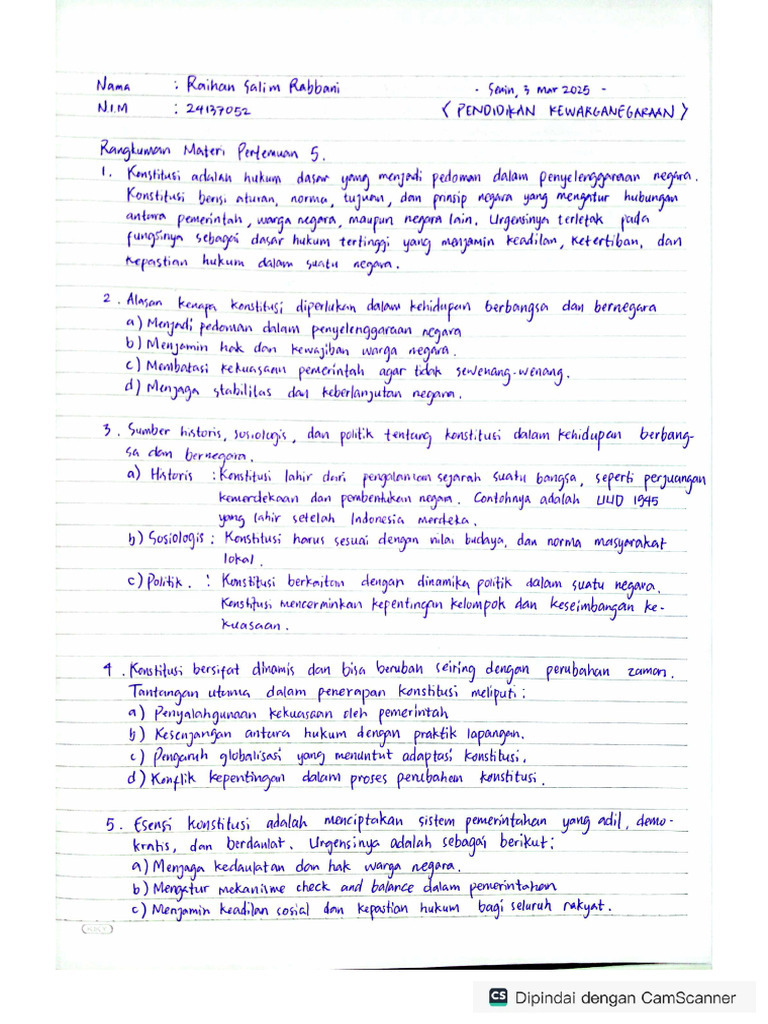 Nama : Raihan Salim Rabbani - Senin, 3 Mar 2025 -
N.I.M : 24137052 < PENDIDIKAN KEWARGANEGARAAN >
Rangkuman Materi Pertemuan 5.
1. Konstitusi adalah hukum dasar yang menjadi pedoman dalam penyelenggaraan negara.
Konstitusi berisi aturan, norma, tujuan, dan prinsip negara yang mengatur hubungan
antara pemerintah, warga negara, maupun negara lain. Urgensinya terletak pada
fungsinya sebagai dasar hukum tertinggi yang menjamin keadilan, ketertiban, dan
kepastian hukum dalam suatu negara.
2. Alasan kenapa konstitusi diperlukan dalam kehidupan berbangsa dan bernegara
a) Menjadi pedoman dalam penyelenggaraan negara
b) Menjamin hak dan kewajiban warga negara.
c) Membatasi kekuasaan pemerintah agar tidak sewenang-wenang.
d) Menjaga stabilitas dan keberlanjutan negara.
3. Sumber historis, sosiologis, dan politik tentang konstitusi dalam kehidupan berbang-
sa dan bernegara.
a) Historis : Konstitusi lahir dari pengalaman sejarah suatu bangsa, seperti perjuangan
kemerdekaan dan pembentukan negara. Contohnya adalah UUD 1945
yang lahir setelah Indonesia merdeka.
b) Sosiologis : Konstitusi harus sesuai dengan nilai budaya, dan norma masyarakat
lokal.
c) Politik. : Konstitusi berkaitan dengan dinamika politik dalam suatu negara.
Konstitusi mencerminkan kepentingan kelompok dan keseimbangan ke-
kuasaan.
4. Konstitusi bersifat dinamis dan bisa berubah seiring dengan perubahan zaman.
Tantangan utama dalam penerapan konstitusi meliputi :
a) Penyalahgunaan kekuasaan oleh pemerintah
b) Kesenjangan antara hukum dengan praktik lapangan.
c) Pengaruh globalisasi yang menuntut adaptasi konstitusi.
d) Konflik kepentingan dalam proses perubahan konstitusi.
5. Esensi konstitusi adalah menciptakan sistem pemerintahan yang adil, demo-
kratis, dan berdaulat. Urgensinya adalah sebagai berikut :
a) Menjaga kedaulatan dan hak warga negara.
b) Mengatur mekanisme check and balance dalam pemerintahan
c) Menjamin keadilan sosial dan kepastian hukum bagi seluruh rakyat.
CS Dipindai dengan CamScanner